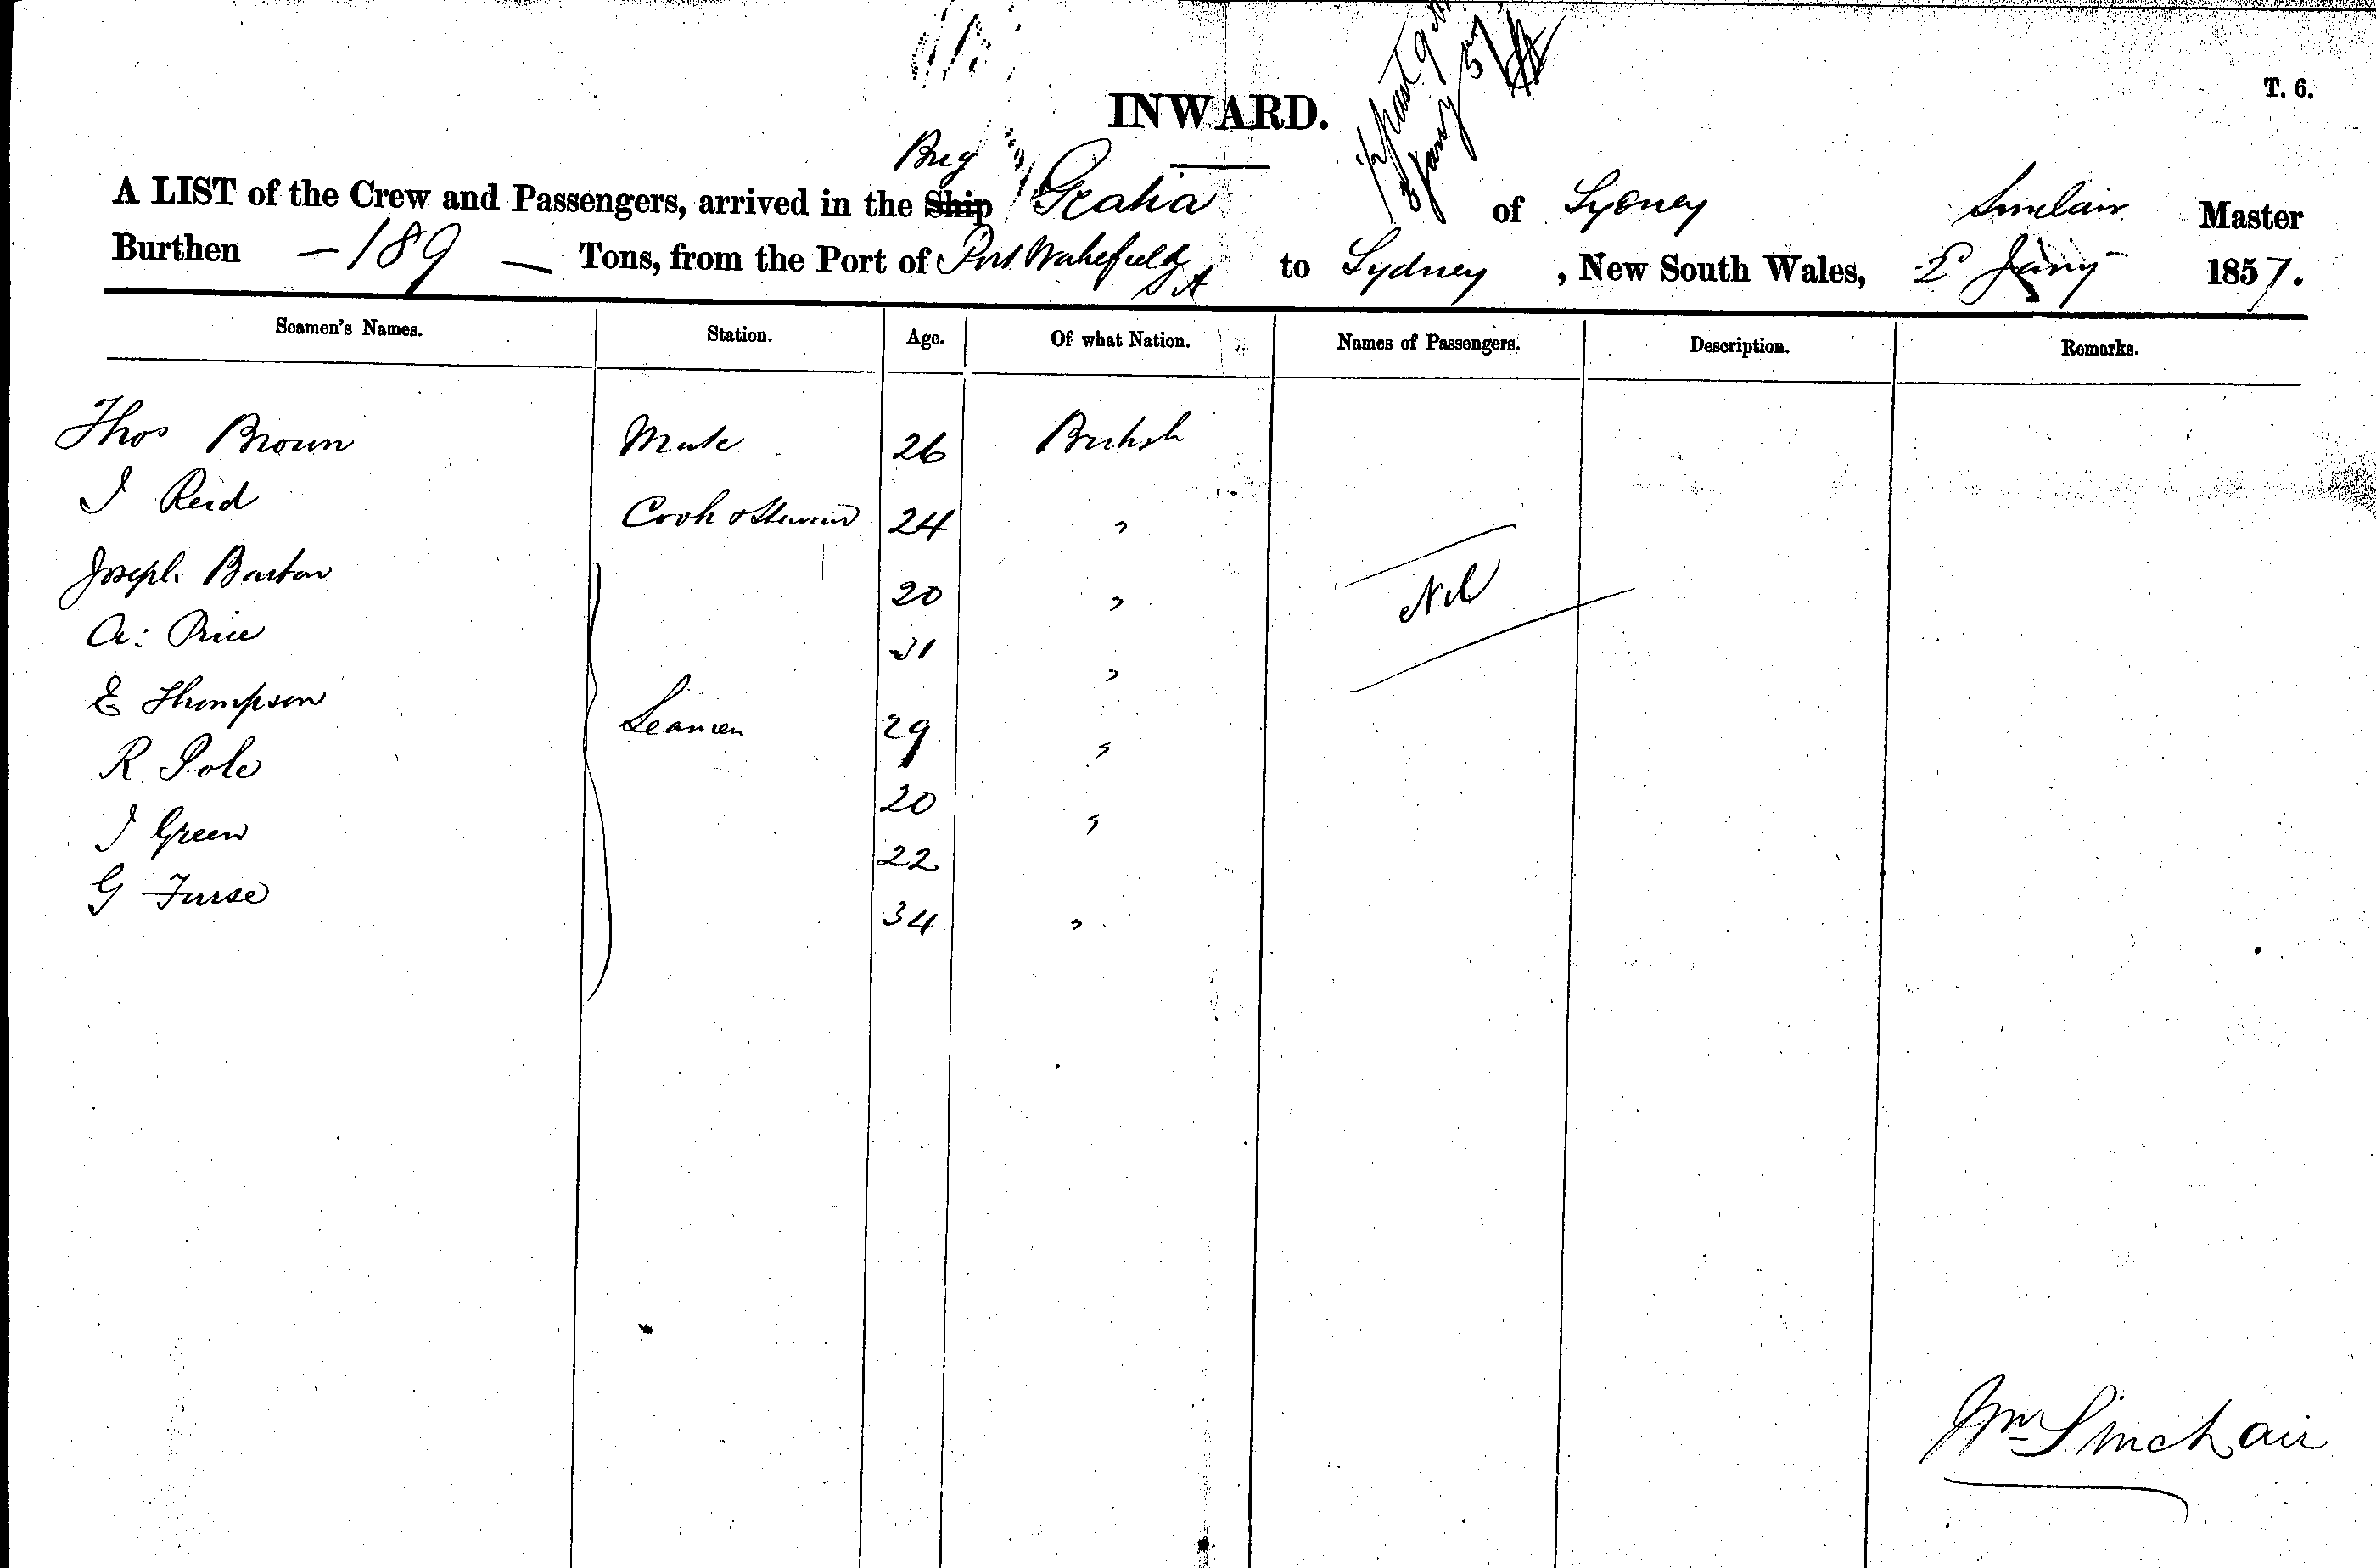 INWARD.
T. 6.
Brig
A LIST of the Crew and Passengers, arrived in the Ship Gratia of Sydney Sinclair Master
Burthen — 189 — Tons, from the Port of Port Wakefield SA to Sydney, New South Wales, 2 Jany 1857.
Seamen's Names. Station. Age. Of what Nation. Names of Passengers. Description. Remarks.
Thos Brown Mate 26 British
J Reid Cook & Steward 24 "
Joseph Barton 20 "
A: Price 31 "
Nil
E Thompson Seamen 29 "
R Pole 20 "
J Green 22
G Furse 34 "
Wm Sinclair